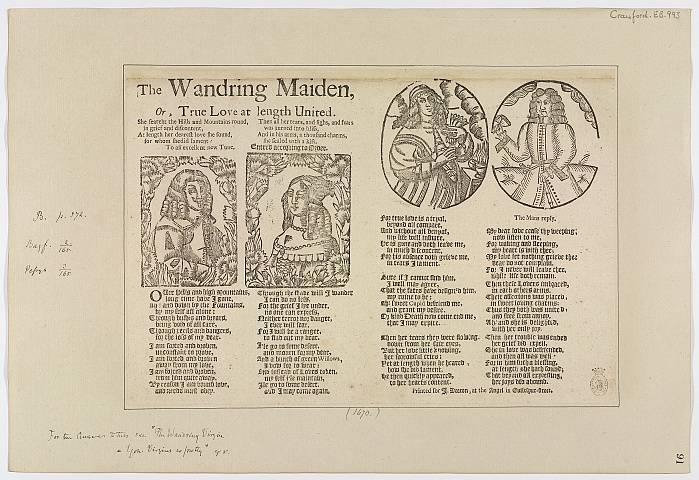 Crawford. EB. 993
The Wandring Maiden,
Or, True Love at length United.
She searcht the Hills and Mountains round,
in grief and discontent,
At length her dearest love she found,
for whom she did lament:
To an excellent new Tune.
Then all her tears, and sighs, and fears
was turned into bliss,
And in his arms, a thousand charms,
she sealed with a kiss.
Entred according to Order.
Over Hills and high mountains,
long time have I gone,
And down by the Fountains,
by my self all alone:
Through bushes and bryars,
being void of all care,
Through perils and dangers,
for the loss of my dear.
I am forced and driven,
away from my love,
very need must obey.
Through the shade will I wander
I can do no less,
For the grief I lye under,
no one can express,
Neither terror nor danger,
I ever will fear,
For I will be a ranger,
to find out my dear.
I'le go to some desert,
and mourn for my dear,
And a bunch of green Willows,
I vow for to wear:
my self I'le maintain,
I'le go to some desert,
and I may come again.
For true love is a tryal,
beyond all compare,
And without all denyal,
He is gone and doth leave me,
in much discontent,
For his absence doth grieve me,
in tears I lament.
Sure if I cannot find him,
I will may agree,
That the fates have design'd him,
my ruine to be:
Ah! sweet Cupid befriend me,
and grant my desire,
Or kind Death now come end me,
that I may expire.
Then her tears they were flowing,
down from her fair eyes,
But her love little knowing,
her sorrowful cries:
Yet at length when he heared,
how she did lament,
He then quickly appeared,
to her hearts content.
The Mans reply.
My dear love cease thy weeping,
now listen to me,
For waking and sleeping,
my heart is with thee:
My love let nothing grieve thee,
dear do not complain,
For I never will leave thee,
while life doth remain.
Then these Lovers imbraced,
in each others arms,
Their affections was placed,
in sweet loving charms:
Thus they both was united,
and free from annoy,
And she is delighted,
with her only joy.
Then her trouble was ended
her grief did expell,
She in love was befriended,
and then all was well:
For in him such a blessing,
at length she hath found,
That beyond all expressing,
her joys did abound.
Printed for J. Deacon, at the Angel in Guiltspur-street.
B. p. 372.
Bagf. 2/165
Pepys 5/165
(1690.)
For the Answer to this see "The Wandring Virgin
q.v.
91